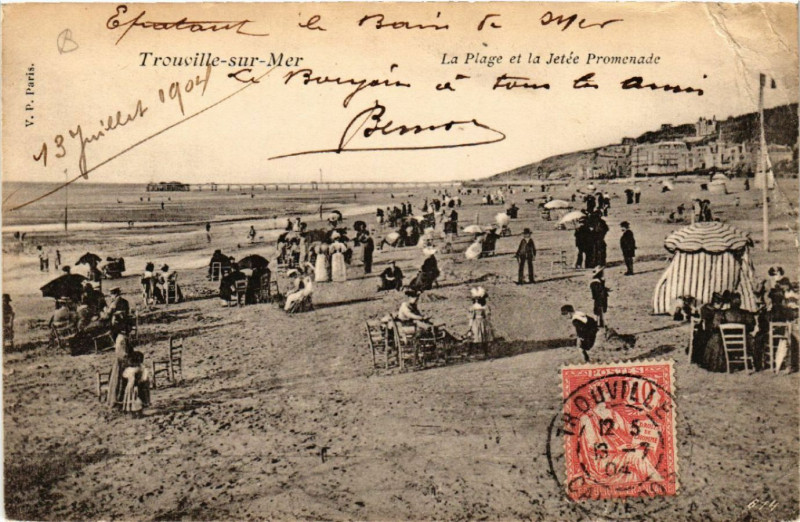 Epatant le Bain de Mer
Trouville-sur-Mer
La Plage et la Jetée Promenade
Le Bonjour à tous les amis
13 Juillet 1904
V. P. Paris.
POSTES
10
TROUVILLE
12 5
13 -7
04